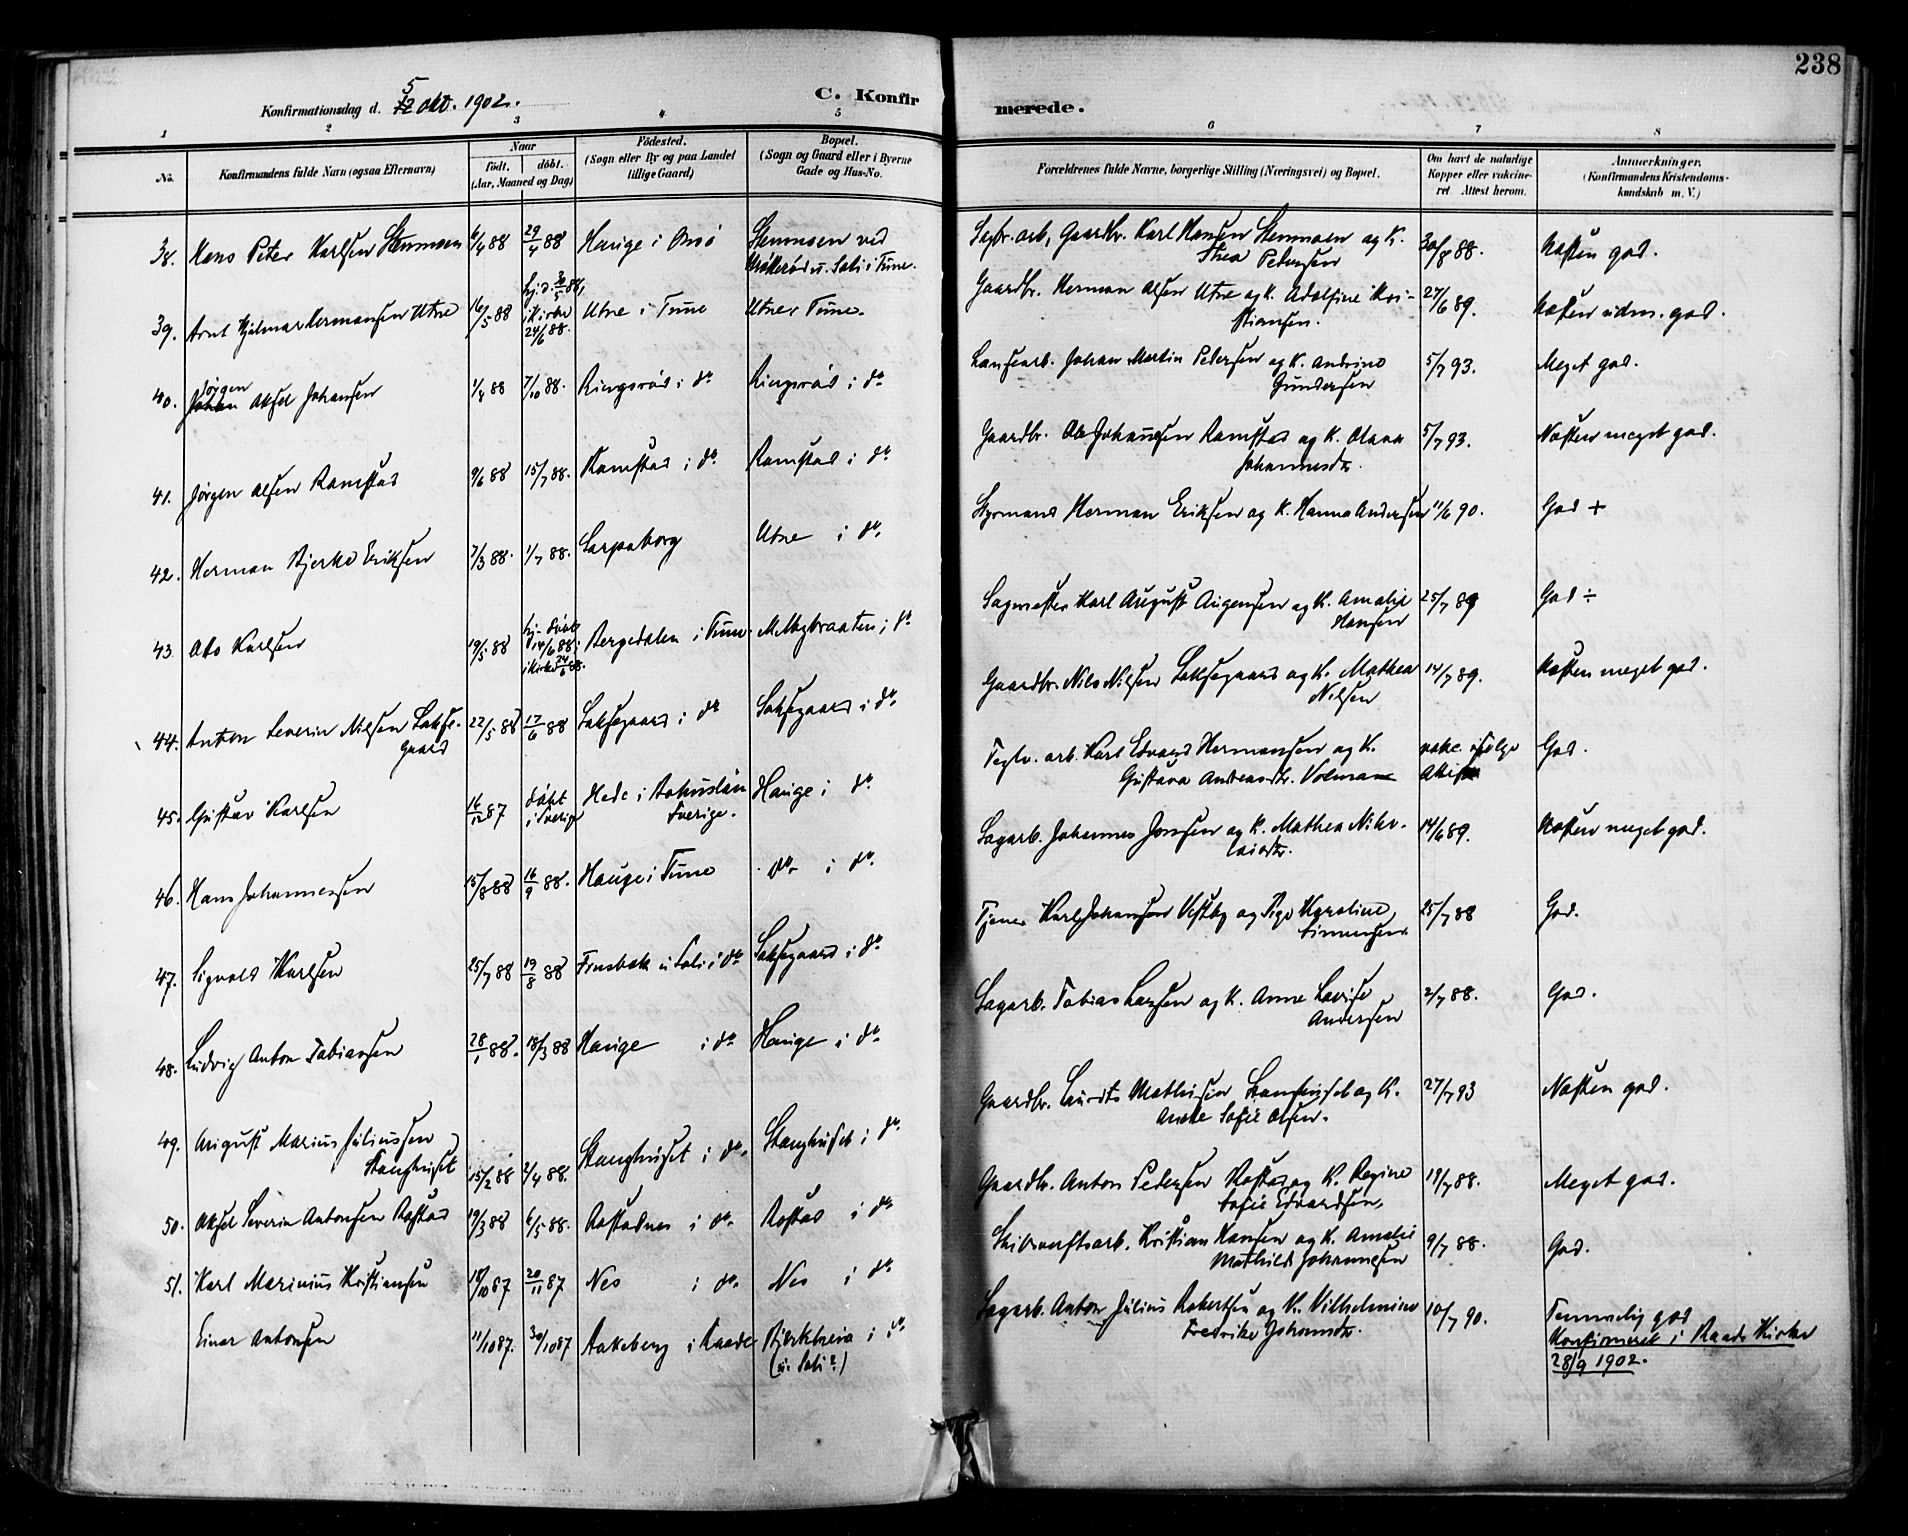 238
Konfirmationsdag d. 5/12 okt. 1902.
C. Konfirmerede.
1 2 3 4 5 6 7 8
No. Konfirmandens fulde Navn (ogsaa Efternavn) Naar født. døbt. (Aar, Maaned og Dag) Fødested. (Sogn eller By og paa Landet tillige Gaard) Bopæl. (Sogn og Gaard eller i Byerne Gade og Hus-No. Forældrenes fulde Navne, borgerlige Stilling (Næringsvei) og Bopæl. Om havt de naturlige Kopper eller vakcineret. Attest herom. Anmerkninger. (Konfirmandens Kristendomskundskab m. V.)
38. Hans Peter Karlsen Stenmoen 6/4 88 29/4 88 Hauge i Onsø Stenmoen ved
u. Soli i Tune. Gaardbr. Karl Hansen Stenmoen og K. Thea Pedersen 30/8 88. Næsten god.
39. Arnt Hjalmar Hermansen Utne 16/5 88 hj.d. 3/5 88, i Kirke 24/6 88. Utne i Tune Utne i Tune. Gaardbr. Herman Olsen Utne og K. Adolfine Kristiansen. 27/6 89. Næsten udm. god.
40. Johan Jørgen Aksel Johansen 1/4 88 7/10 88. Ringsrød i do Ringsrød i do Johan Martin Pedersen og K. Andrine Gundersen 5/7 93. Meget god.
41. Jørgen Olsen Ramstad 9/6 88 15/7 88. Ramstad i do Ramstad i do Gaardbr. Ole Johannesen Ramstad og K. Olava Johannesdr. 5/7 93. Næsten meget god.
42. Herman Bjerke Eriksen 7/3 88. 1/7 88. Sarpsborg Utne i do. Styrmand Herman Eriksen og K. Hanna Andersen 11/6 90. God +
43. Otto Karlsen 19/5 88 hj. døbt 14/6 88; i Kirke 24/6 88. Bergedalen i Tune Melbybraaten i do Sagmester Karl August Augensen og K. Amalie Hansen 25/7 89 God ÷
44. Anton Severin Nilsen Laksegaard 22/5 88 17/6 88 Laksegaard i do Laksegaard i do Gaardbr. Nils Nilsen Laksegaard og K. Mathea Nilsen 14/7 89. Næsten meget god.
45. Gustav Karlsen 16/12 87 døbt i Sverige Hede i Bohuslän Sverige. Hauge i do. Teglv. arb. Karl Edvard Hermansen og K. Gustava Andreasdr. Volman vakc. ifølge Attest God.
46. Hans Johannessen 15/8 88 16/9 88. Hauge i Tune do i do. Sagarb. Johannes Jonsen og K. Mathea Nikolaisdr. 14/6 89. Næsten meget god.
47. Sigvald Karlsen 25/7 88 19/8 88 Frusbæk u Soli i do Laksegaard i do Tjener Karl Johansen Vestby og Pige Karoline Simensen 25/7 88 God.
48. Ludvig Anton Tobiassen 28/1 88. 18/3 88 Hauge i do Hauge i do Sagarb. Tobias Larsen og K. Anne Lovise Andersen 2/7 88. God.
49. August Marius Juliussen Stanghuset 15/2 88 2/4 88. Stanghuset i do. Stanghuset i do. Gaardbr. Laurits Mathisen Stanghuset og K. Anne Sofie Olsen. 27/7 93 Næsten god.
50. Aksel Severin Antonsen Rostad 19/3 88 6/5 88. Rostadnes i do. Rostad i do Gaardbr. Anton Pedersen Rostad og K. Regine Sofie Edvardsen, 19/7 88. Meget god.
51. Karl Marinius Kristiansen 18/10 87 20/11 87 Nes i do. Nes i do Skibsverftsarb. Kristian Hansen og K. Amalie Mathilde Johannesen 9/7 88. God.
Einar Antonsen 11/10 87. 30/10 87 Aakeberg i Raade i do (u. Soli?) Sagarb. Anton Julius Robertsen og K. Vilhelmine Fredrikke Johansdr. 10/7 90. Temmelig god
Konfirmeret i Raade Kirke
28/9 1902.